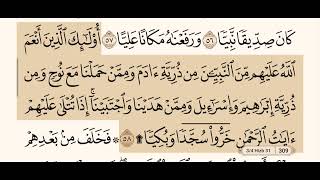 كَانَ صِدِّيقًا نَّبِيًّا ٥٦ وَرَفَعْنَٰهُ مَكَانًا عَلِيًّا ٥٧ أُو۟لَٰٓئِكَ ٱلَّذِينَ أَنْعَمَ
ٱللَّهُ عَلَيْهِم مِّنَ ٱلنَّبِيِّـۧنَ مِن ذُرِّيَّةِ ءَادَمَ وَمِمَّنْ حَمَلْنَا مَعَ نُوحٍ وَمِن
ذُرِّيَّةِ إِبْرَٰهِيمَ وَإِسْرَٰٓءِيلَ وَمِمَّنْ هَدَيْنَا وَٱجْتَبَيْنَآ ۚ إِذَا تُتْلَىٰ عَلَيْهِمْ
ءَايَٰتُ ٱلرَّحْمَٰنِ خَرُّوا۟ سُجَّدًا وَبُكِيًّا ۩ ٥٨ فَخَلَفَ مِنۢ بَعْدِهِمْ
3/4 Hizb 31 309